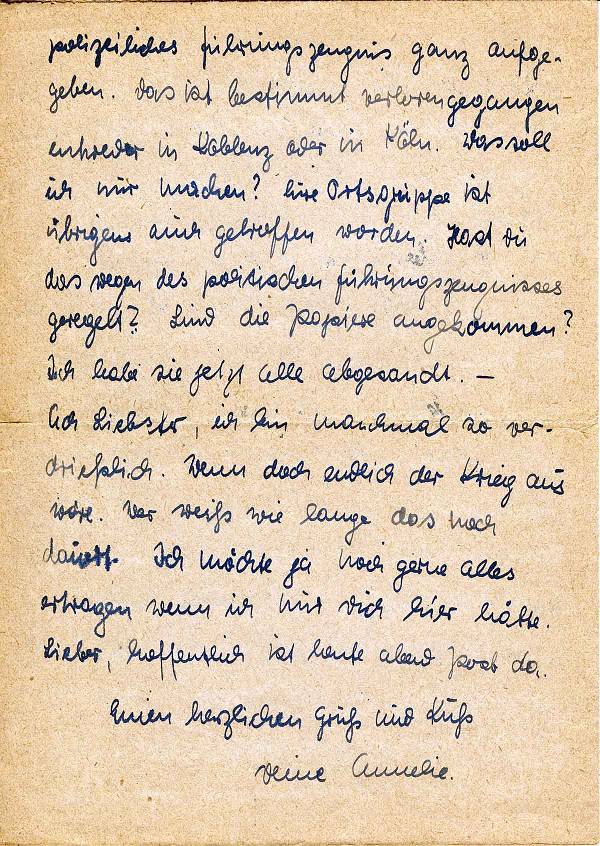 polizeiliches Führungszeugnis ganz aufge-
geben. Das ist bestimmt verlorengegangen
entweder in Koblenz oder in Köln. Was soll
ich nur machen? Eure Ortsgruppe ist
übrigens auch getroffen worden. Hast Du
das wegen des politischen Führungszeugnisses
geregelt? Sind die Papiere angekommen?
Ich habe sie jetzt alle abgesandt. –
Ach Liebster, ich bin manchmal so ver-
drießlich. Wenn doch endlich der Krieg aus
wäre. Wer weiß wie lange das noch
dauert. Ich möchte ja noch gerne alles
ertragen wenn ich nur Dich hier hätte.
Lieber, hoffentlich ist heute abend Post da.
Einen herzlichen Gruß und Kuß
Deine Annelie.